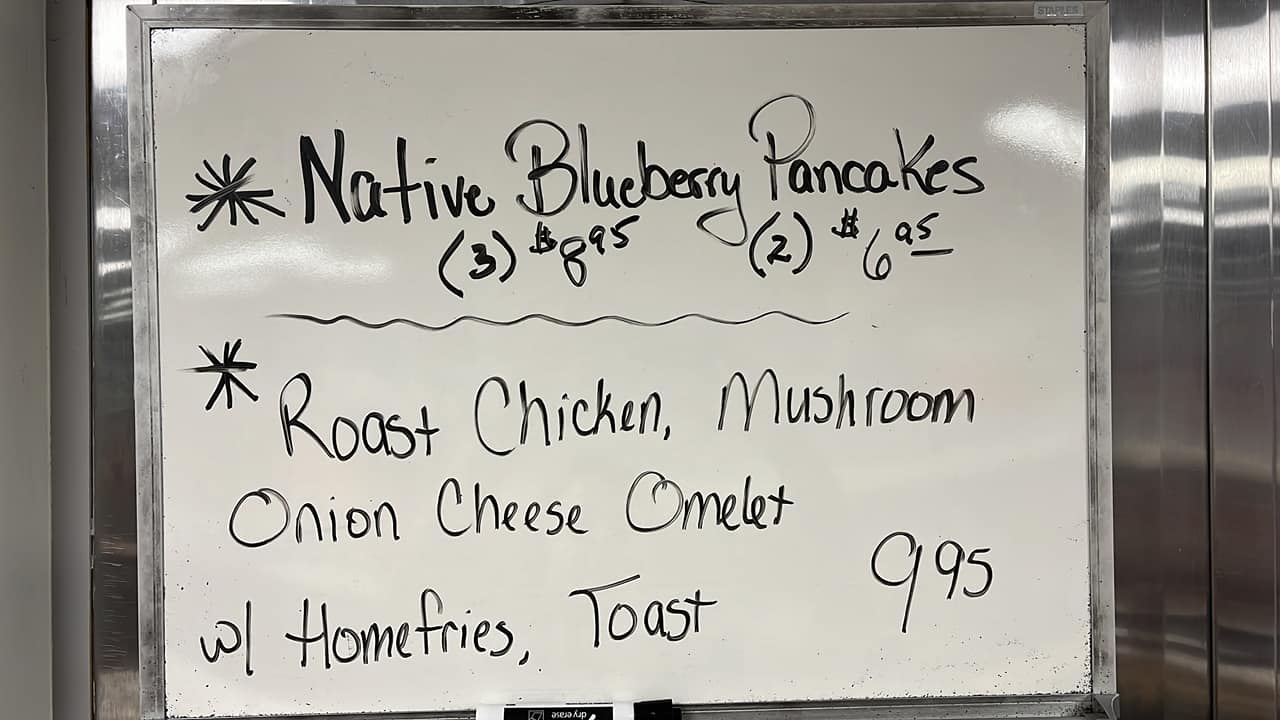 STAPLES
* Native Blueberry Pancakes
(3) $8 95 (2) $6 95
* Roast Chicken, Mushroom
Onion Cheese Omelet
w/ Homefries, Toast 9 95
dry erase